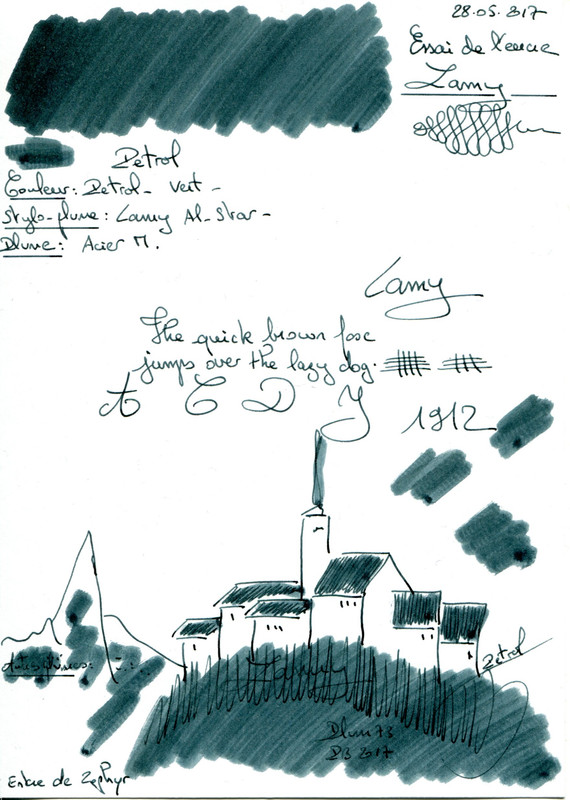 28.05.2017
Essai de l'encre
Lamy
Petrol
Couleur: Petrol - vert -
Stylo-plume: Lamy Al-Star -
Plume: Acier M.
Lamy
The quick brown fox
jumps over the lazy dog.
A C D Y
1912
Lamy
Petrol
Plum73
2017
Encre de Zephyr